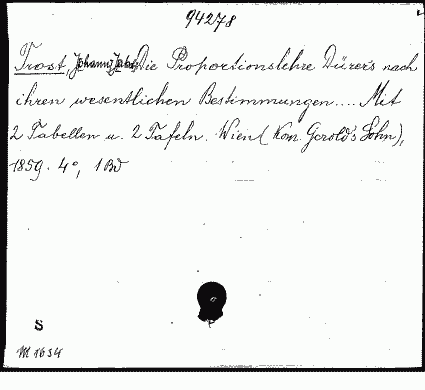 94278
Trost, Johann Jakob, Die Proportionslehre Dürers nach
ihren wesentlichen Bestimmungen.... Mit
2 Tabellen u. 2 Tafeln. Wien (Kom. Gerold's Sohn),
1859. 4°, 1 Bd
S
M 1634